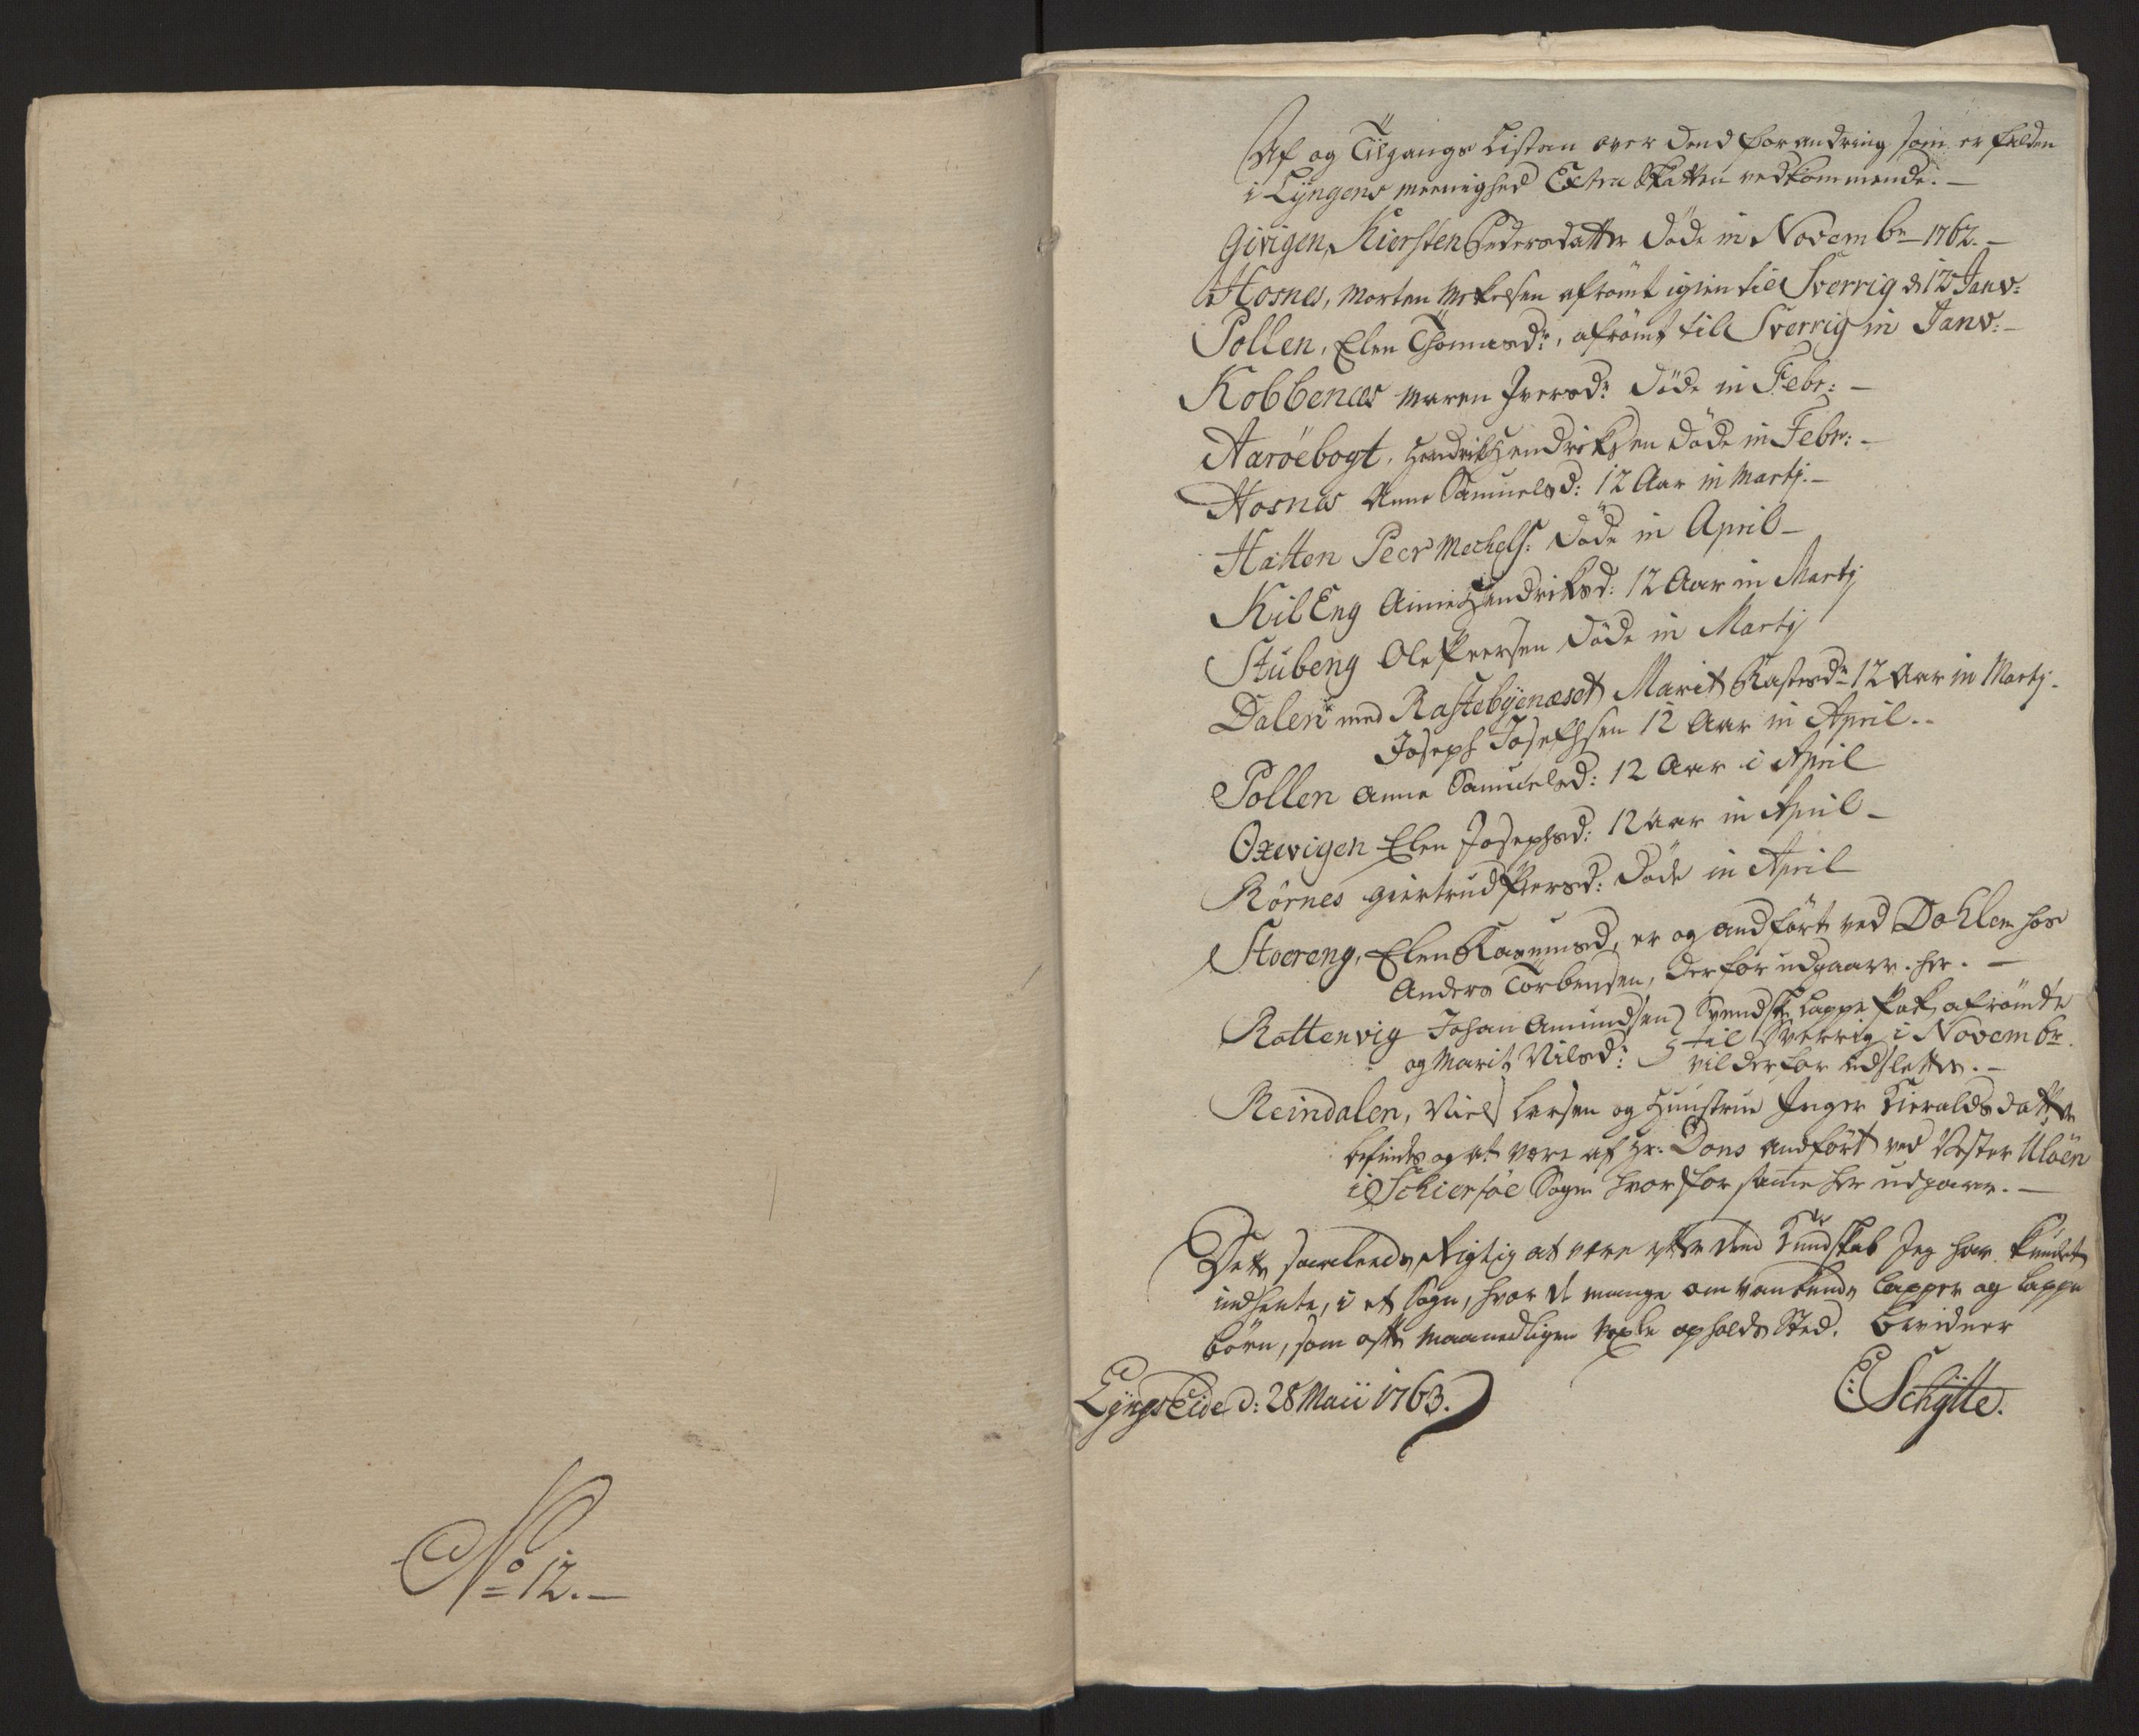 No 12.-
Af og Tilgangs Listen over dend forandring som er falden
i Lyngens meenighed Extra Skatten vedkommende.-
Givigen, Kiersten Pedersdatter døde in Novembr 1762.-
Hosnes, Morten Mikelsen afrømt igien til Sverrig d 12 Janv:
Pollen, Elen Thomasdr, afrømt til Sverrig in Janv:-
Kobbenæs Maren Iversdr døde in Febr:-
Aarøebogt, Hendrik Hendriksen døde in Febr:-
Hosnes Anne Samuelsd: 12 Aar in Martj.-
Hatten Peer Mechels: døde in April-
KilEng Anne Hendriksd: 12 Aar in Martj
Stubeng Ole Peersen døde in Martj
Dalen med Rastebyenæset Marit Rastesdr 12 Aar in Martj.
Joseph Josephsen 12 Aar in April.-
Pollen Anne Samuelsd: 12 Aar i April
Oxevigen Elen Josephsd: 12 Aar in April-
Rørnes Giertrud Peersd: døde in April
Stoereng, Elen Rasmusd, er og andført ved Dahlen hos
Anders Torbensen, derfor udgaaer her.-
Rottenvig Johan Amundsen Svendsk Lappe Pak afrømte
og Marit Nilsd: til Sverrig i Novembr.
vil derfor udslettes.-
Reindalen, Niels Larsen og Hunstrue Inger Kieraldsdatter
befindes og at være af Hr. Dons andført ved Vester Uløen
i Schiersøe Sogn hvorfor samme her udgaaer.-
Dette saaledes Rigtig at være efter dend Kundskab Jeg har kundet
indhente, i et Sogn, hvor de mange omvankende Lapper og Lappe
børn, som ofte maanedligen vexle opholds Sted. bevidner
LyngsEide d: 28 Maii 1763.
E: Schytte.